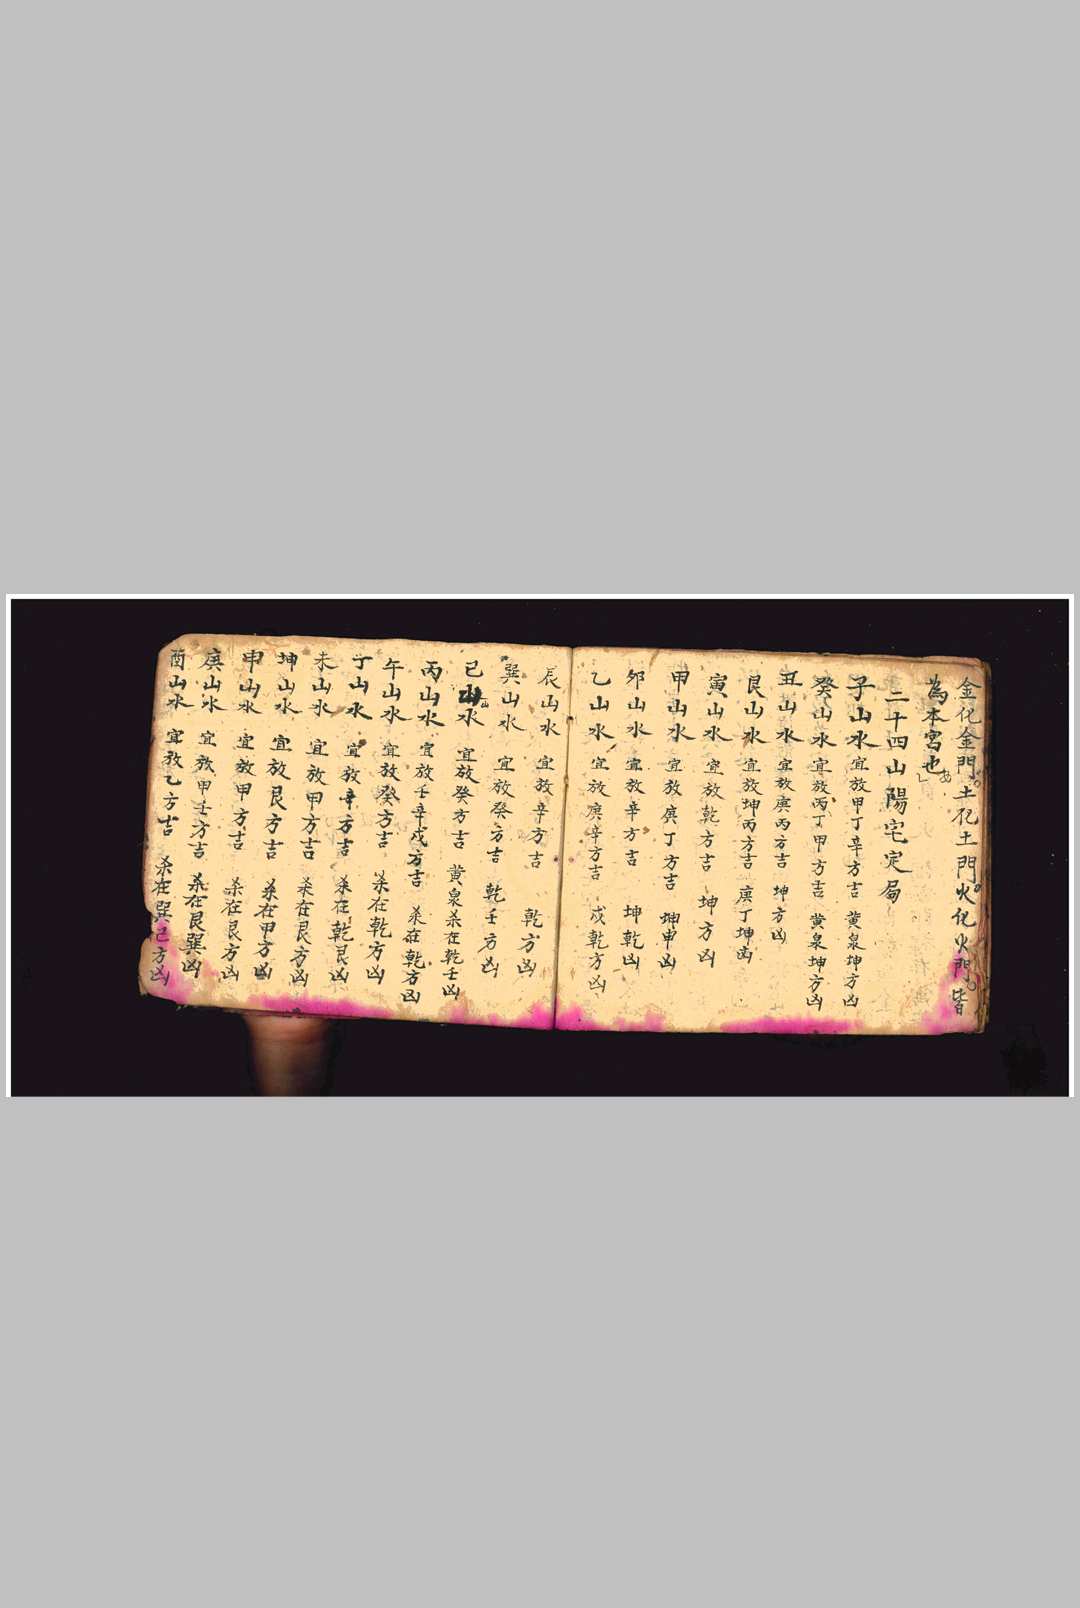 金化金門土化土門火化火門皆
為本宮也
二十四山陽宅定局
子山水宜放甲丁辛方吉 黄泉坤方凶
癸山水宜放丙丁甲方吉 黄泉坤方凶
丑山水宜放庚丙方吉 坤方凶
艮山水宜放坤丙方吉 庚丁坤凶
寅山水宜放乾方吉 坤方凶
甲山水宜放庚丁方吉 坤申凶
卯山水宜放辛方吉 坤乾凶
乙山水宜放庚辛方吉 戌乾方凶
辰山水宜放辛方吉 乾方凶
巽山水宜放癸方吉 乾壬方凶
巳山水宜放癸方吉 黄泉杀在乾壬凶
丙山水宜放壬辛戌方吉 杀在乾方凶
午山水宜放癸方吉 杀在乾方凶
丁山水宜放辛方吉 杀在乾艮凶
未山水宜放甲方吉 杀在艮方凶
坤山水宜放艮方吉 杀在甲方凶
申山水宜放甲方吉 杀在艮方凶
庚山水宜放甲壬方吉 杀在艮巽凶
酉山水宜放乙方吉 杀在巽己方凶